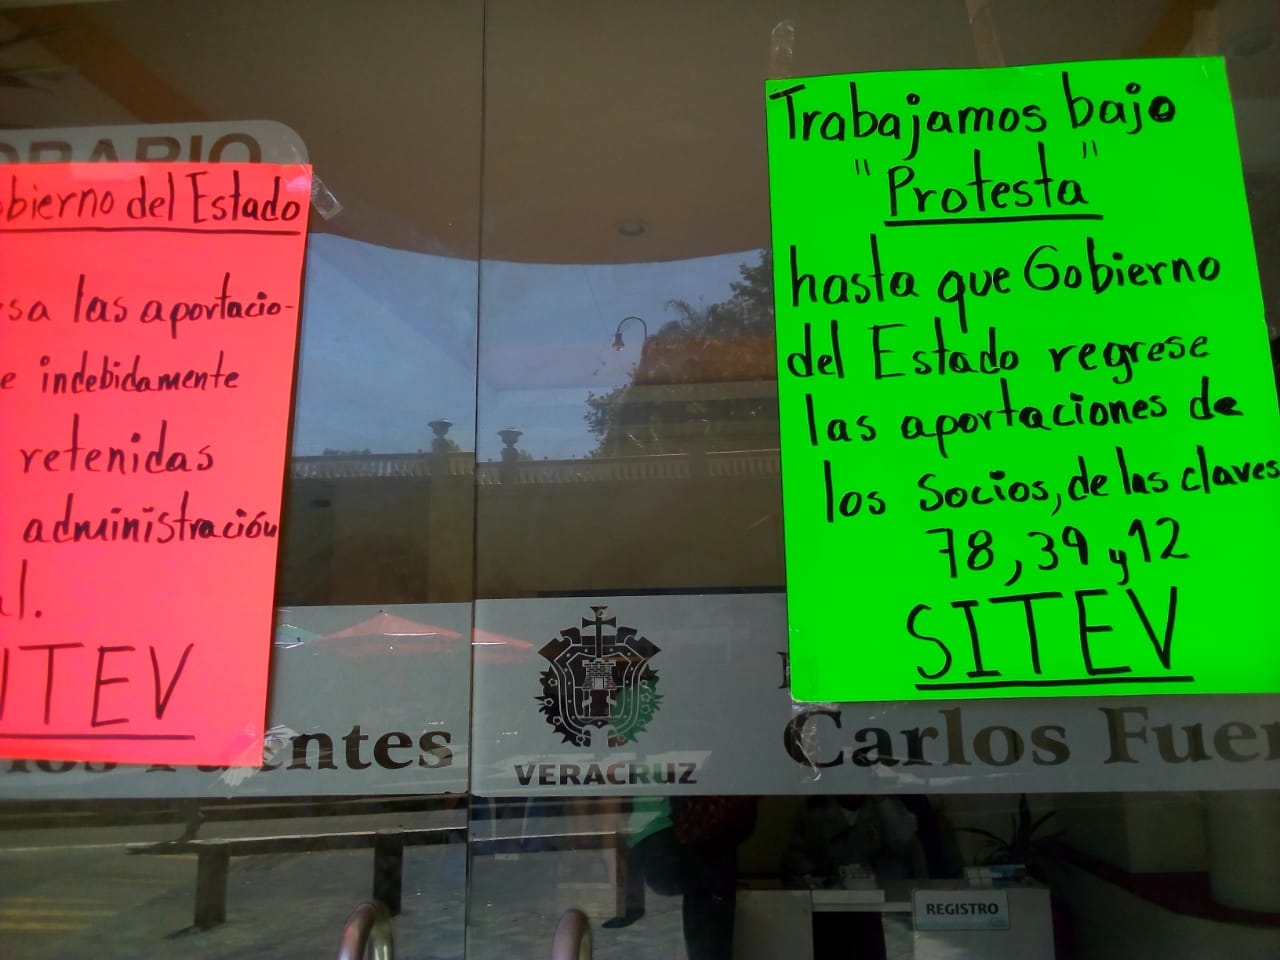 ORARIO
obierno del Estado
sa las aportacio-
e indebidamente
retenidas
administración
al.
ITEV
los Fuentes
Trabajamos bajo
"Protesta"
hasta que Gobierno
del Estado regrese
las aportaciones de
los Socios, de las claves
78, 39 y 12
SITEV
VERACRUZ
Carlos Fuen
REGISTRO